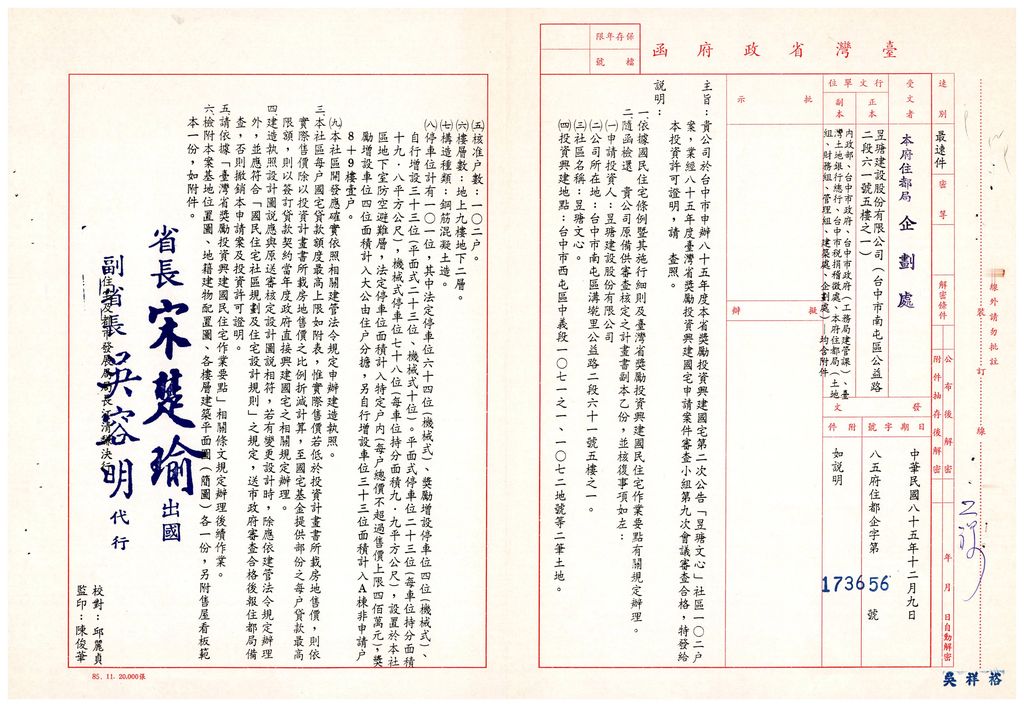 臺灣省政府函
保存年限
檔號
速別
最速件
密等
解密條件
公布後解密
附件抽存後解密
年 月 日自動解密
線外請勿批註
裝
訂
線
受文者
本府住都局企劃處
行文單位
正本
昱瑭建設股份有限公司（台中市南屯區公益路
二段六一號五樓之一）
副本
內政部、台中市政府、台中市政府（工務局建管課）、臺
灣土地銀行總行、台中市稅捐稽徵處、本府住都局（土地
組、財務組、管理組、建築處、企劃處）—均含附件
發文
日期
中華民國八十五年十二月九日
字號
八五府住都企字第
173656
號
附件
如說明
批示
擬辦
主旨：貴公司於台中市申辦八十五年度本省獎勵投資興建國宅第二次公告「昱瑭文心」社區一〇二户
案，業經八十五年度臺灣省獎勵投資興建國宅申請案件審查小組第九次會議審查合格，特發給
本投資許可證明，請 查照。
說明：
一、依據國民住宅條例暨其施行細則及臺灣省獎勵投資興建國民住宅作業要點有關規定辦理。
二、隨函檢還 貴公司原備供審查核定之計畫書副本乙份，並核復事項如左：
㈠申請投資人：昱瑭建設股份有限公司
㈡公司所在地：台中市南屯區溝墘里公益路二段六十一號五樓之一。
㈢社區名稱：昱瑭文心
㈣投資興建地點：台中市西屯區中義段一〇七一之一、一〇七二地號等二筆土地。
㈤核准户數：一〇二户。
㈥樓層數：地上九樓地下二層。
㈦構造種類：鋼筋混凝土造。
㈧停車位計有一〇一位，其中法定停車位六十四位（機械式）、獎勵增設停車位四位（機械式）、
自行增設三十三位（平面式二十三位、機械式十位）。平面式停車位二十三位（每車位持分面積
十九．八平方公尺），機械式停車位七十八位（每車位持分面積九．九平方公尺），設置於本社
區地下室防空避難層，法定停車位面積計入特定户內（每户總價不超過售價上限四佰萬元，獎
勵增設車位四位面積計入大公由住户分擔，另自行增設車位三十三位面積計入A棟非申請户
8+9樓壹户。
㈨本社區開發應確實依照相關建管法令規定申辦建造執照。
三、本社區每户國宅貸款額度最高上限如附表，惟實際售價若低於投資計畫書所載房地售價，則依
實際售價除以投資計畫書所載房地售價之比例折減計算，至國宅基金提供部份之每户貸款最高
限額，則以簽訂貸款契約當年度政府直接興建國宅之相關規定辦理。
四、建造執照設計圖說應與原送審核定設計圖說相符，若有變更設計時，除應依建管法令規定辦理
外，並應符合「國民住宅社區規劃及住宅設計規則」之規定，送市政府審查合格後報住都局備
查，否則撤銷本申請案及投資許可證明。
五、請依據「臺灣省獎勵投資興建國民住宅作業要點」相關條文規定辦理後續作業。
六、檢附本案基地位置圖、地籍建物配置圖、各樓層建築平面圖（簡圖）各一份，另附售屋看板範
本一份，如附件。
省長宋楚瑜出國
副省長吳容明代行
校對：邱麗貞
監印：陳俊華
85. 11. 20.000張
吳祥裕